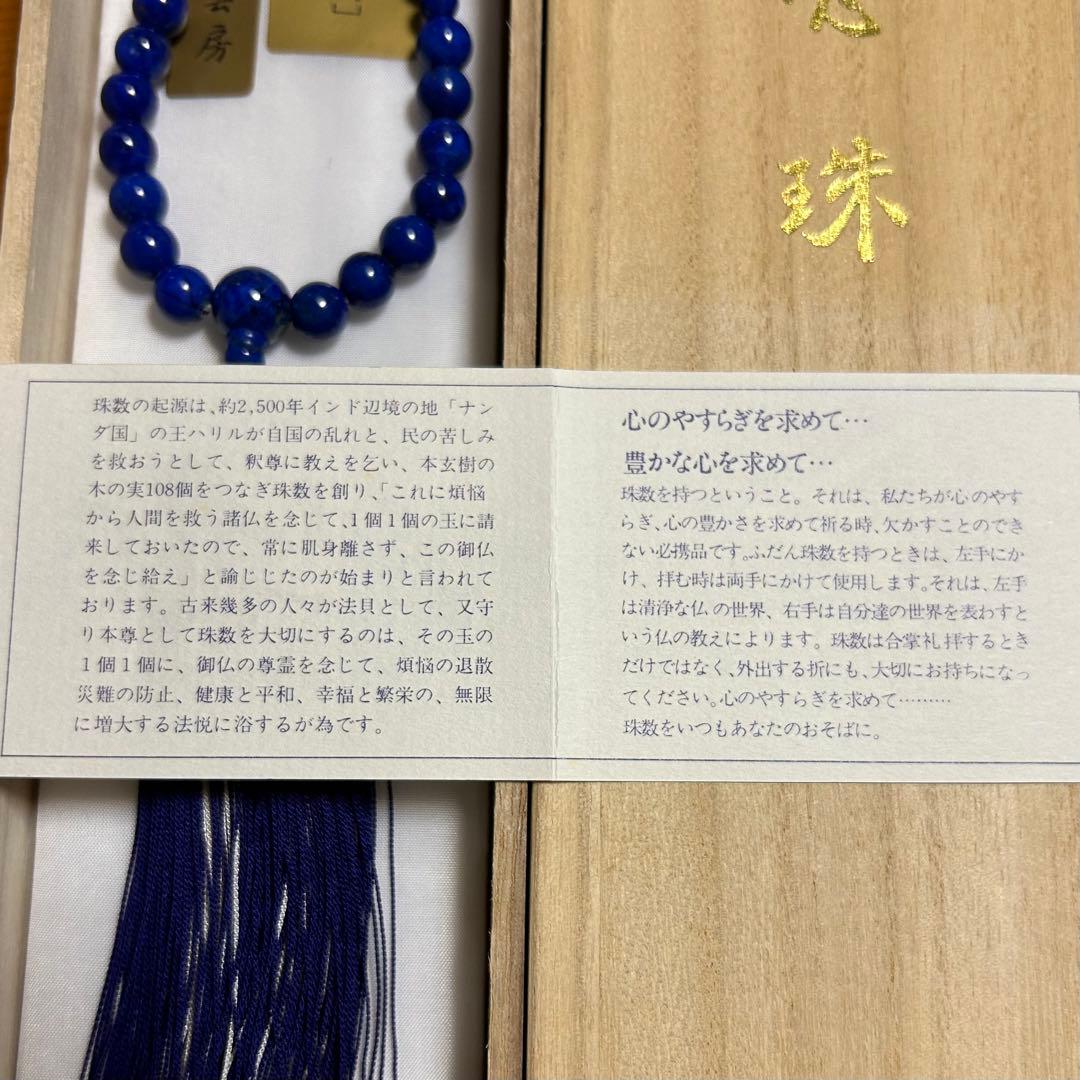 房
珠
珠数の起源は、約2,500年インド辺境の地「ナン
ダ国」の王ハリルが自国の乱れと、民の苦しみ
を救おうとして、釈尊に教えを乞い、本玄樹の
木の実108個をつなぎ珠数を創り、「これに煩悩
から人間を救う諸仏を念じて、1個1個の玉に請
来しておいたので、常に肌身離さず、この御仏
を念じ給え」と諭じじたのが始まりと言われて
おります。古来幾多の人々が法貝として、又守
り本尊として珠数を大切にするのは、その玉の
1個1個に、御仏の尊霊を念じて、煩悩の退散
災難の防止、健康と平和、幸福と繁栄の、無限
に増大する法悦に浴するが為です。
心のやすらぎを求めて…
豊かな心を求めて…
珠数を持つということ。それは、私たちが心のやす
らぎ、心の豊かさを求めて祈る時、欠かすことのでき
ない必携品です。ふだん珠数を持つときは、左手にか
け、拝む時は両手にかけて使用します。それは、左手
は清浄な仏の世界、右手は自分達の世界を表わすと
いう仏の教えによります。珠数は合掌礼拝するとき
だけではなく、外出する折にも、大切にお持ちになっ
てください。心のやすらぎを求めて………
珠数をいつもあなたのおそばに。